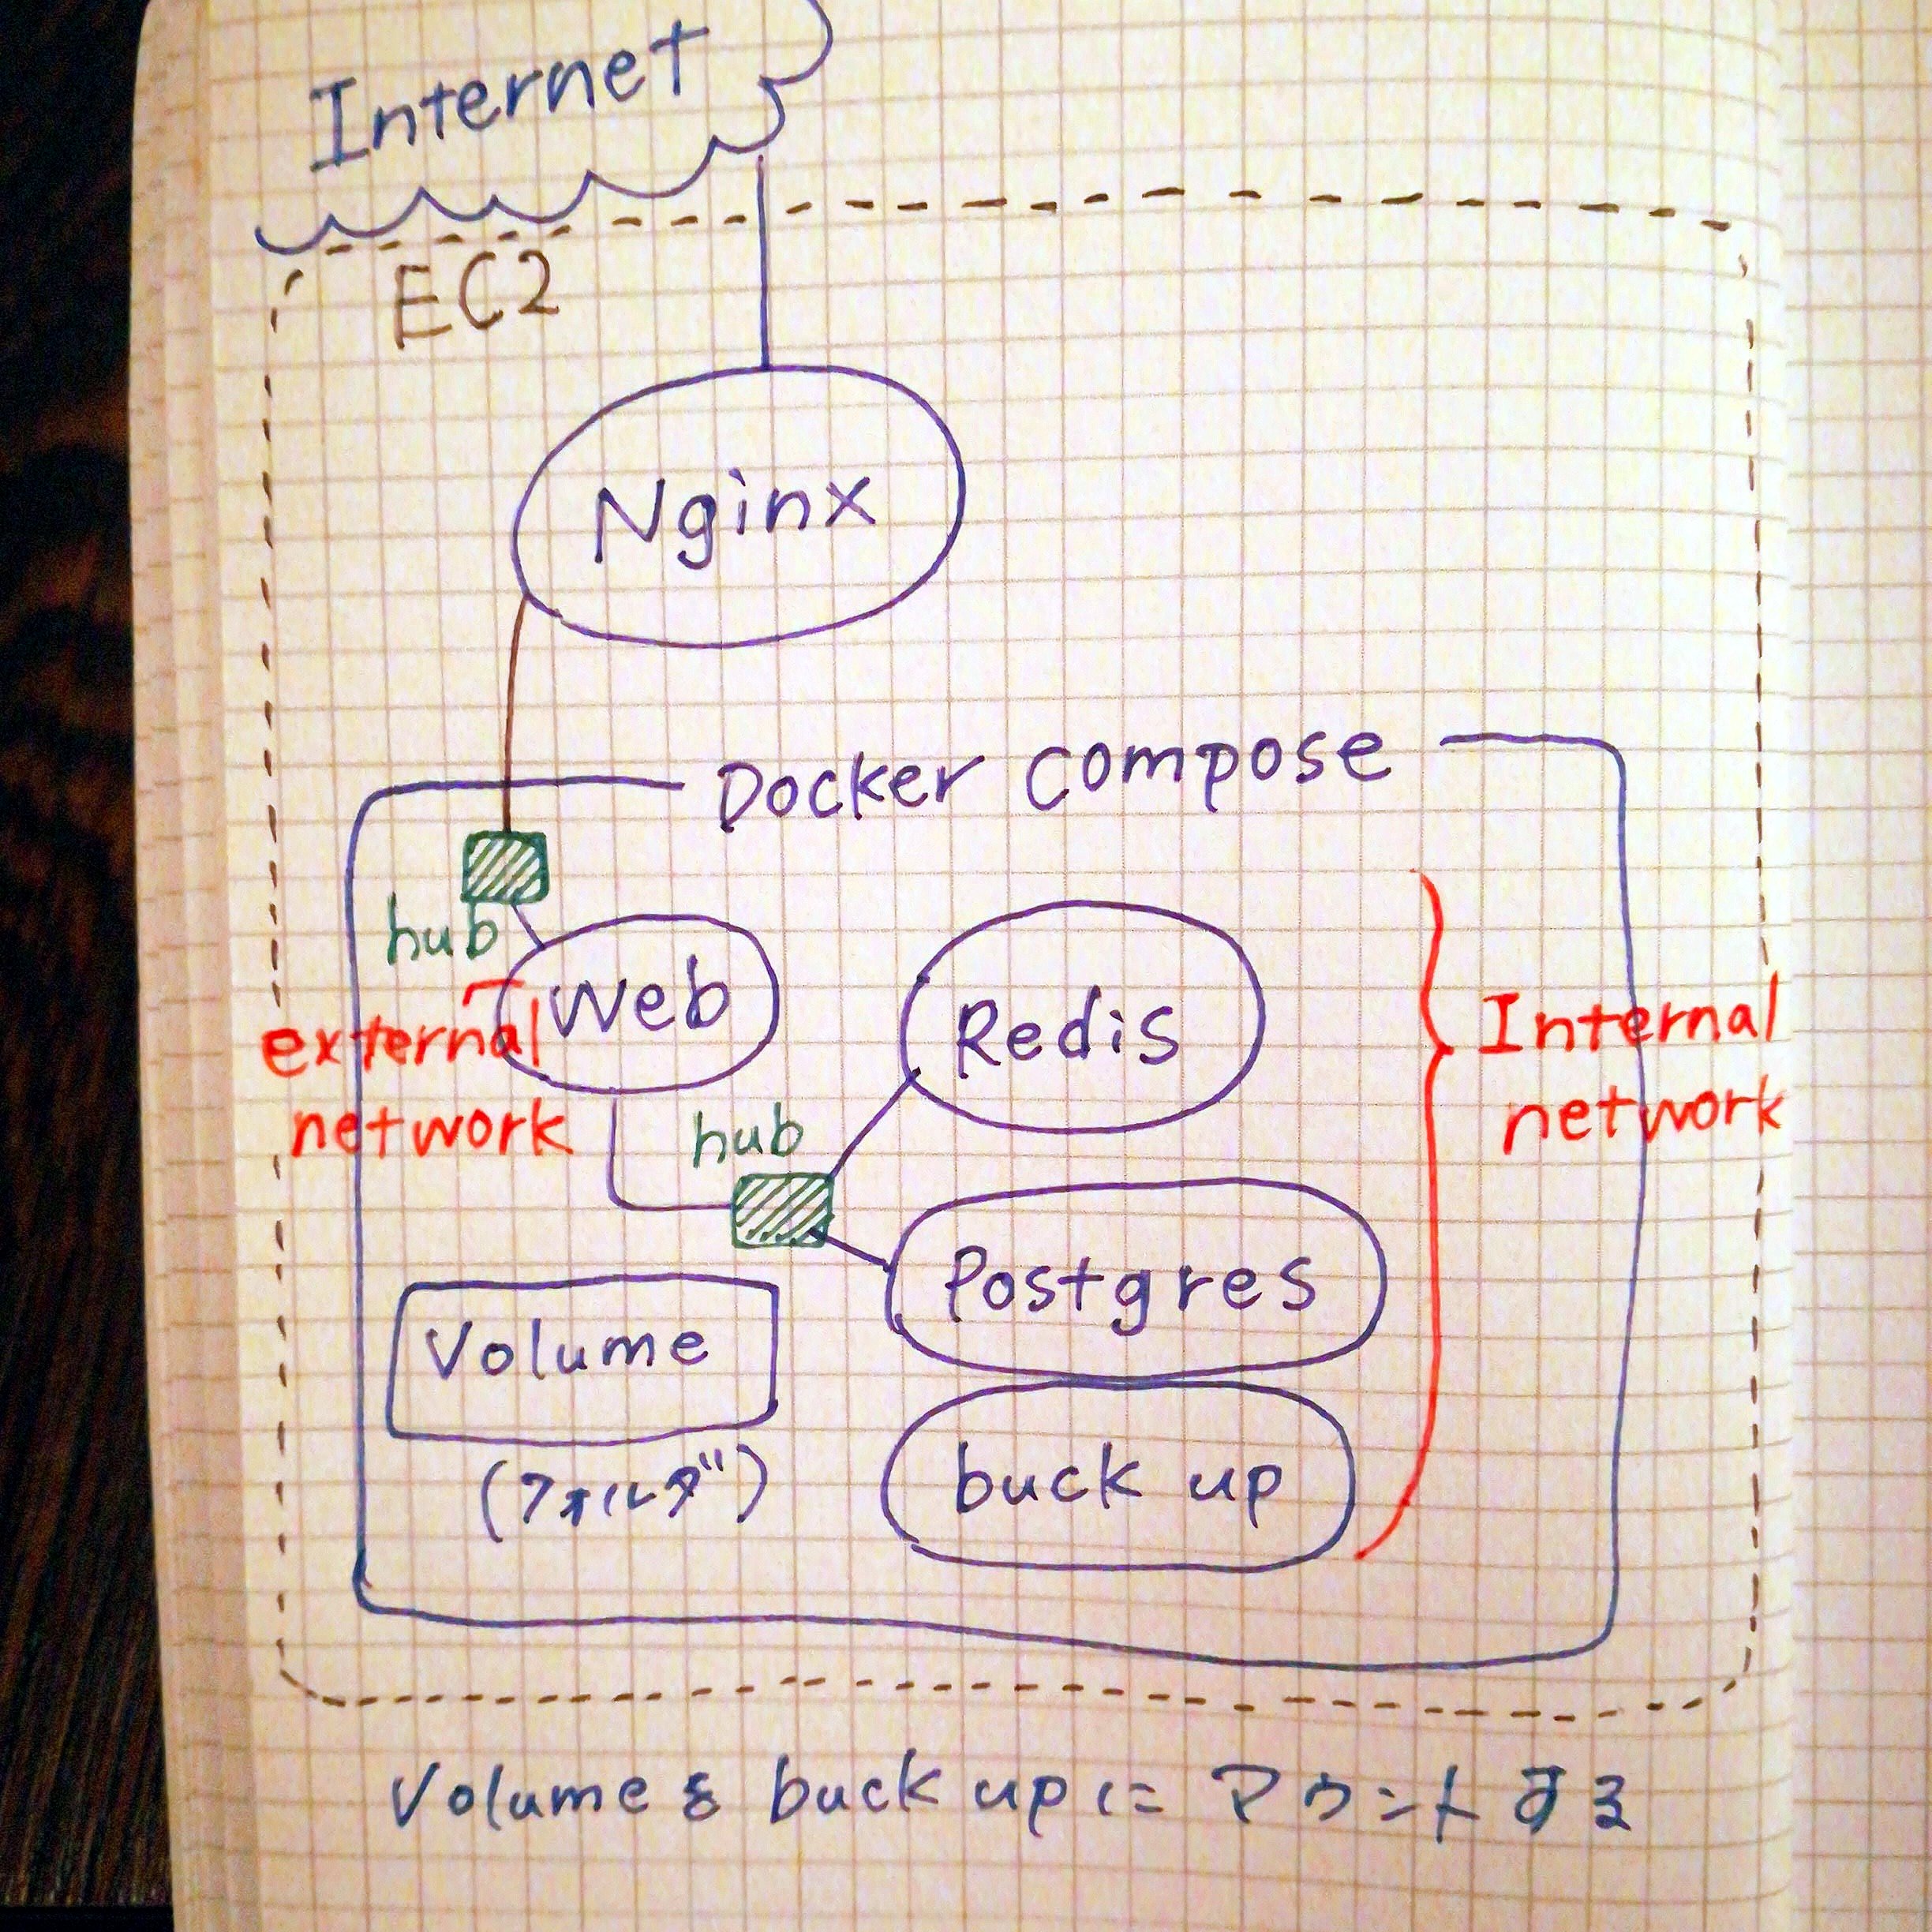 Internet
EC2
Nginx
Docker compose
hub
Web
Redis
external
network
Internal
network
hub
Postgres
Volume
(フォルダ)
buck up
Volume & buck upに マウントする